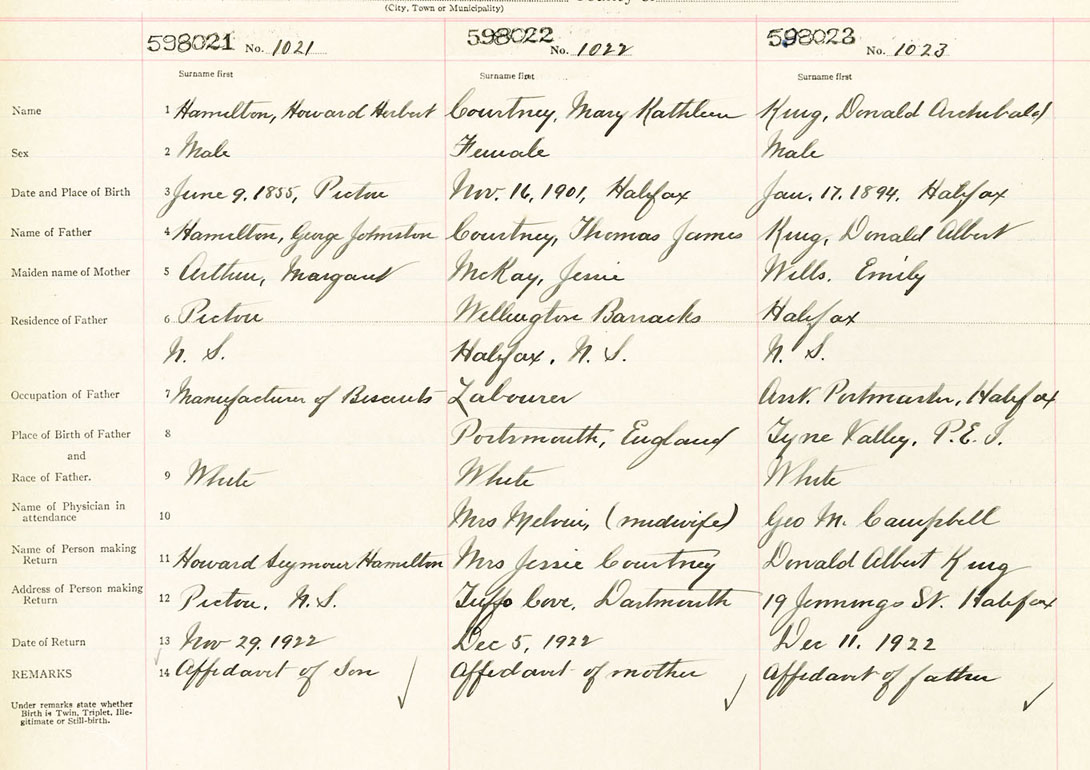 (City, Town or Municipality)
598021 No. 1021 598022 No. 1022 598023 No. 1023
Surname first Surname first Surname first
Name 1 Hamilton, Howard Herbert Courtney, Mary Kathleen King, Donald Archibald
Sex 2 Male Female Male
Date and Place of Birth 3 June 9. 1855, Pictou Nov. 16, 1901, Halifax Jan. 17. 1894. Halifax
Name of Father 4 Hamilton, George Johnston Courtney, Thomas James King, Donald Albert
Maiden name of Mother 5 Arthur, Margaret McKay, Jessie Wills. Emily
Residence of Father 6 Pictou Wellington Barracks Halifax
N. S. Halifax, N. S. N. S.
Occupation of Father 7 Manufacturer of Biscuits Labourer Asst. Postmaster, Halifax
Place of Birth of Father 8 Portsmouth, England Tyne Valley, P.E.I.
and
Race of Father. 9 White White White
Name of Physician in
attendance 10 Mrs Melvin, (midwife) Geo M. Campbell
Name of Person making
Return 11 Howard Seymour Hamilton Mrs Jessie Courtney Donald Albert King
Address of Person making
Return 12 Pictou, N.S. Tuffs Cove, Dartmouth 19 Jennings St. Halifax
Date of Return 13 Nov 29. 1922 Dec 5, 1922 Dec 11. 1922
REMARKS 14 Affidavit of Son Affidavit of mother Affidavit of father
Under remarks state whether
Birth is Twin, Triplet, Ille-
gitimate or Still-birth.